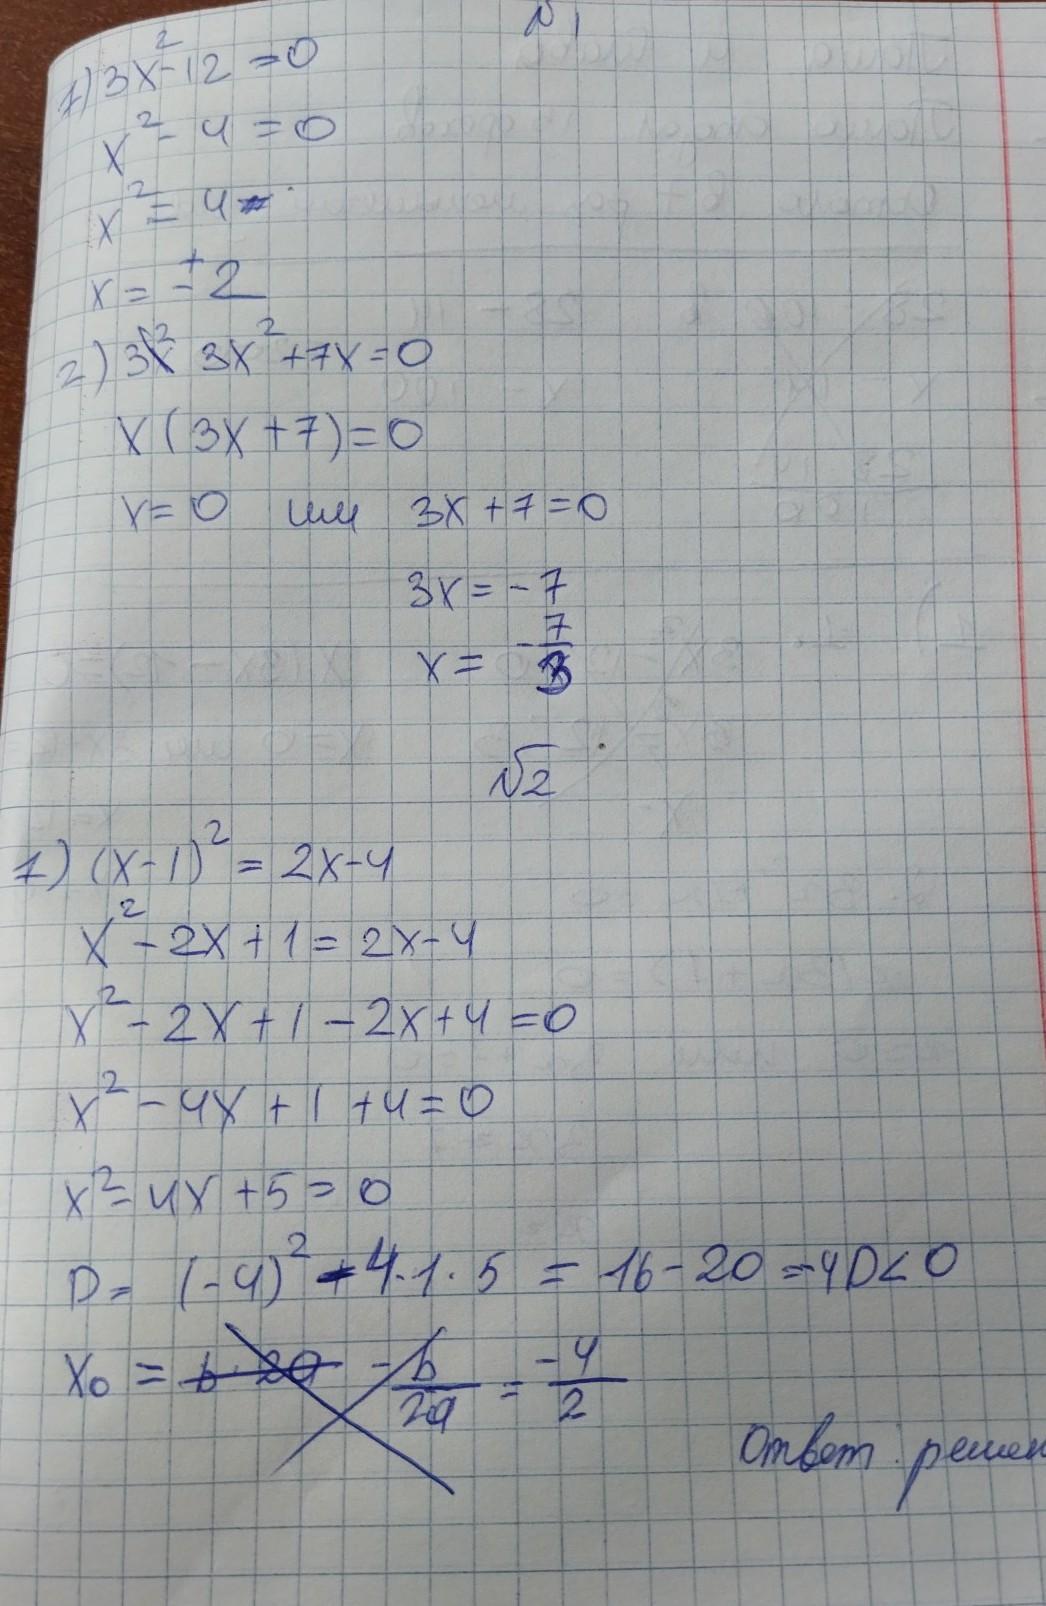 №1
1) 3x²-12=0
x²-4=0
x²=4
x=±2
2) 3x² 3x²+7x=0
x(3x+7)=0
x=0 или 3x+7=0
3x=-7
x=-7/3
√2
1) (x-1)²=2x-4
x²-2x+1=2x-4
x²-2x+1-2x+4=0
x²-4x+1+4=0
x²-4x+5=0
D=(-4)²-4·1·5=16-20=-4 D<0
x₀=b·2a -b/2a=-4/2
Ответ: решен